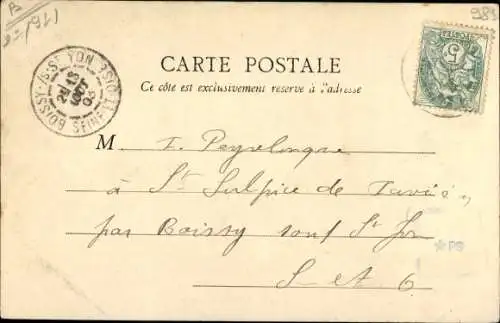 B
983
CARTE POSTALE
Ce côté est exclusivement réservé à l'adresse
BOISSY-S-ST YON SEINE-ET-OISE
5
M. I. Peyrelongue
à St Sulpice de Favière,
par Boissy sous St Yon
S-et-O